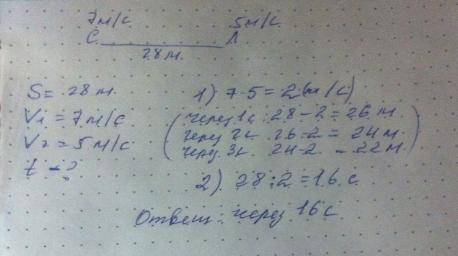 7м/с 5м/с
С Л
28м.
S = 28м.
V1 = 7м/с
V2 = 5м/с
t - ?
1) 7-5=2(м/с)
(через 1с. 28-2=26м.
через 2с. 26-2=24м.
через 3с. 24-2 = 22м)
2) 28:2=16с.
Ответ: через 16с.